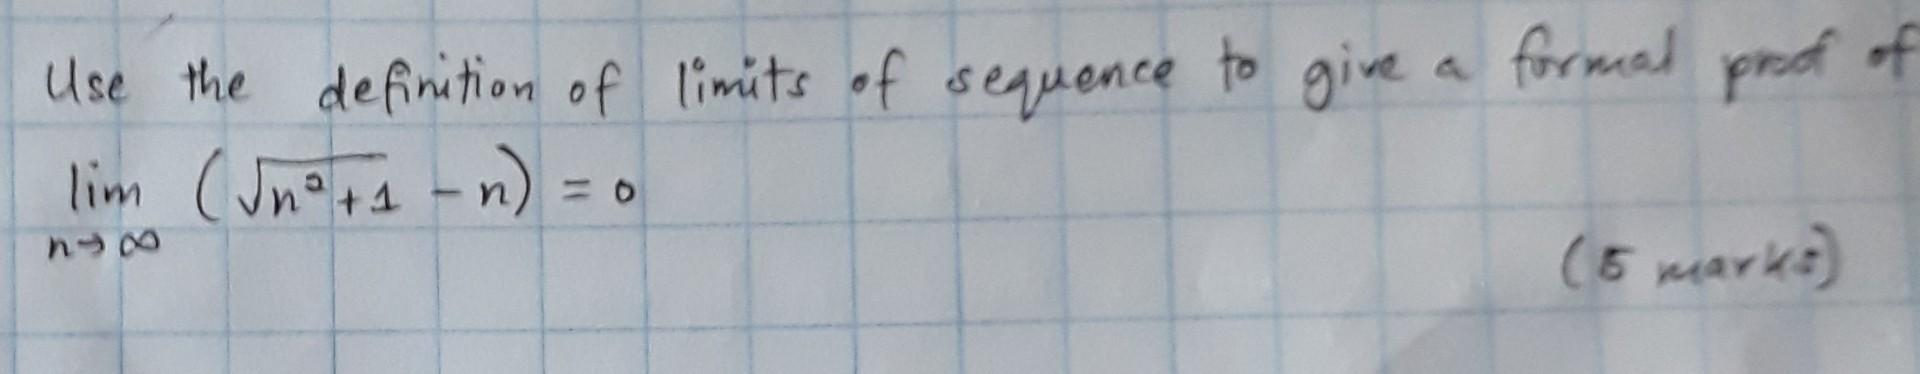 Use the definition of limits of sequence to give a formal proof of
lim (√n²+1 - n) = 0
n→∞
(5 marks)